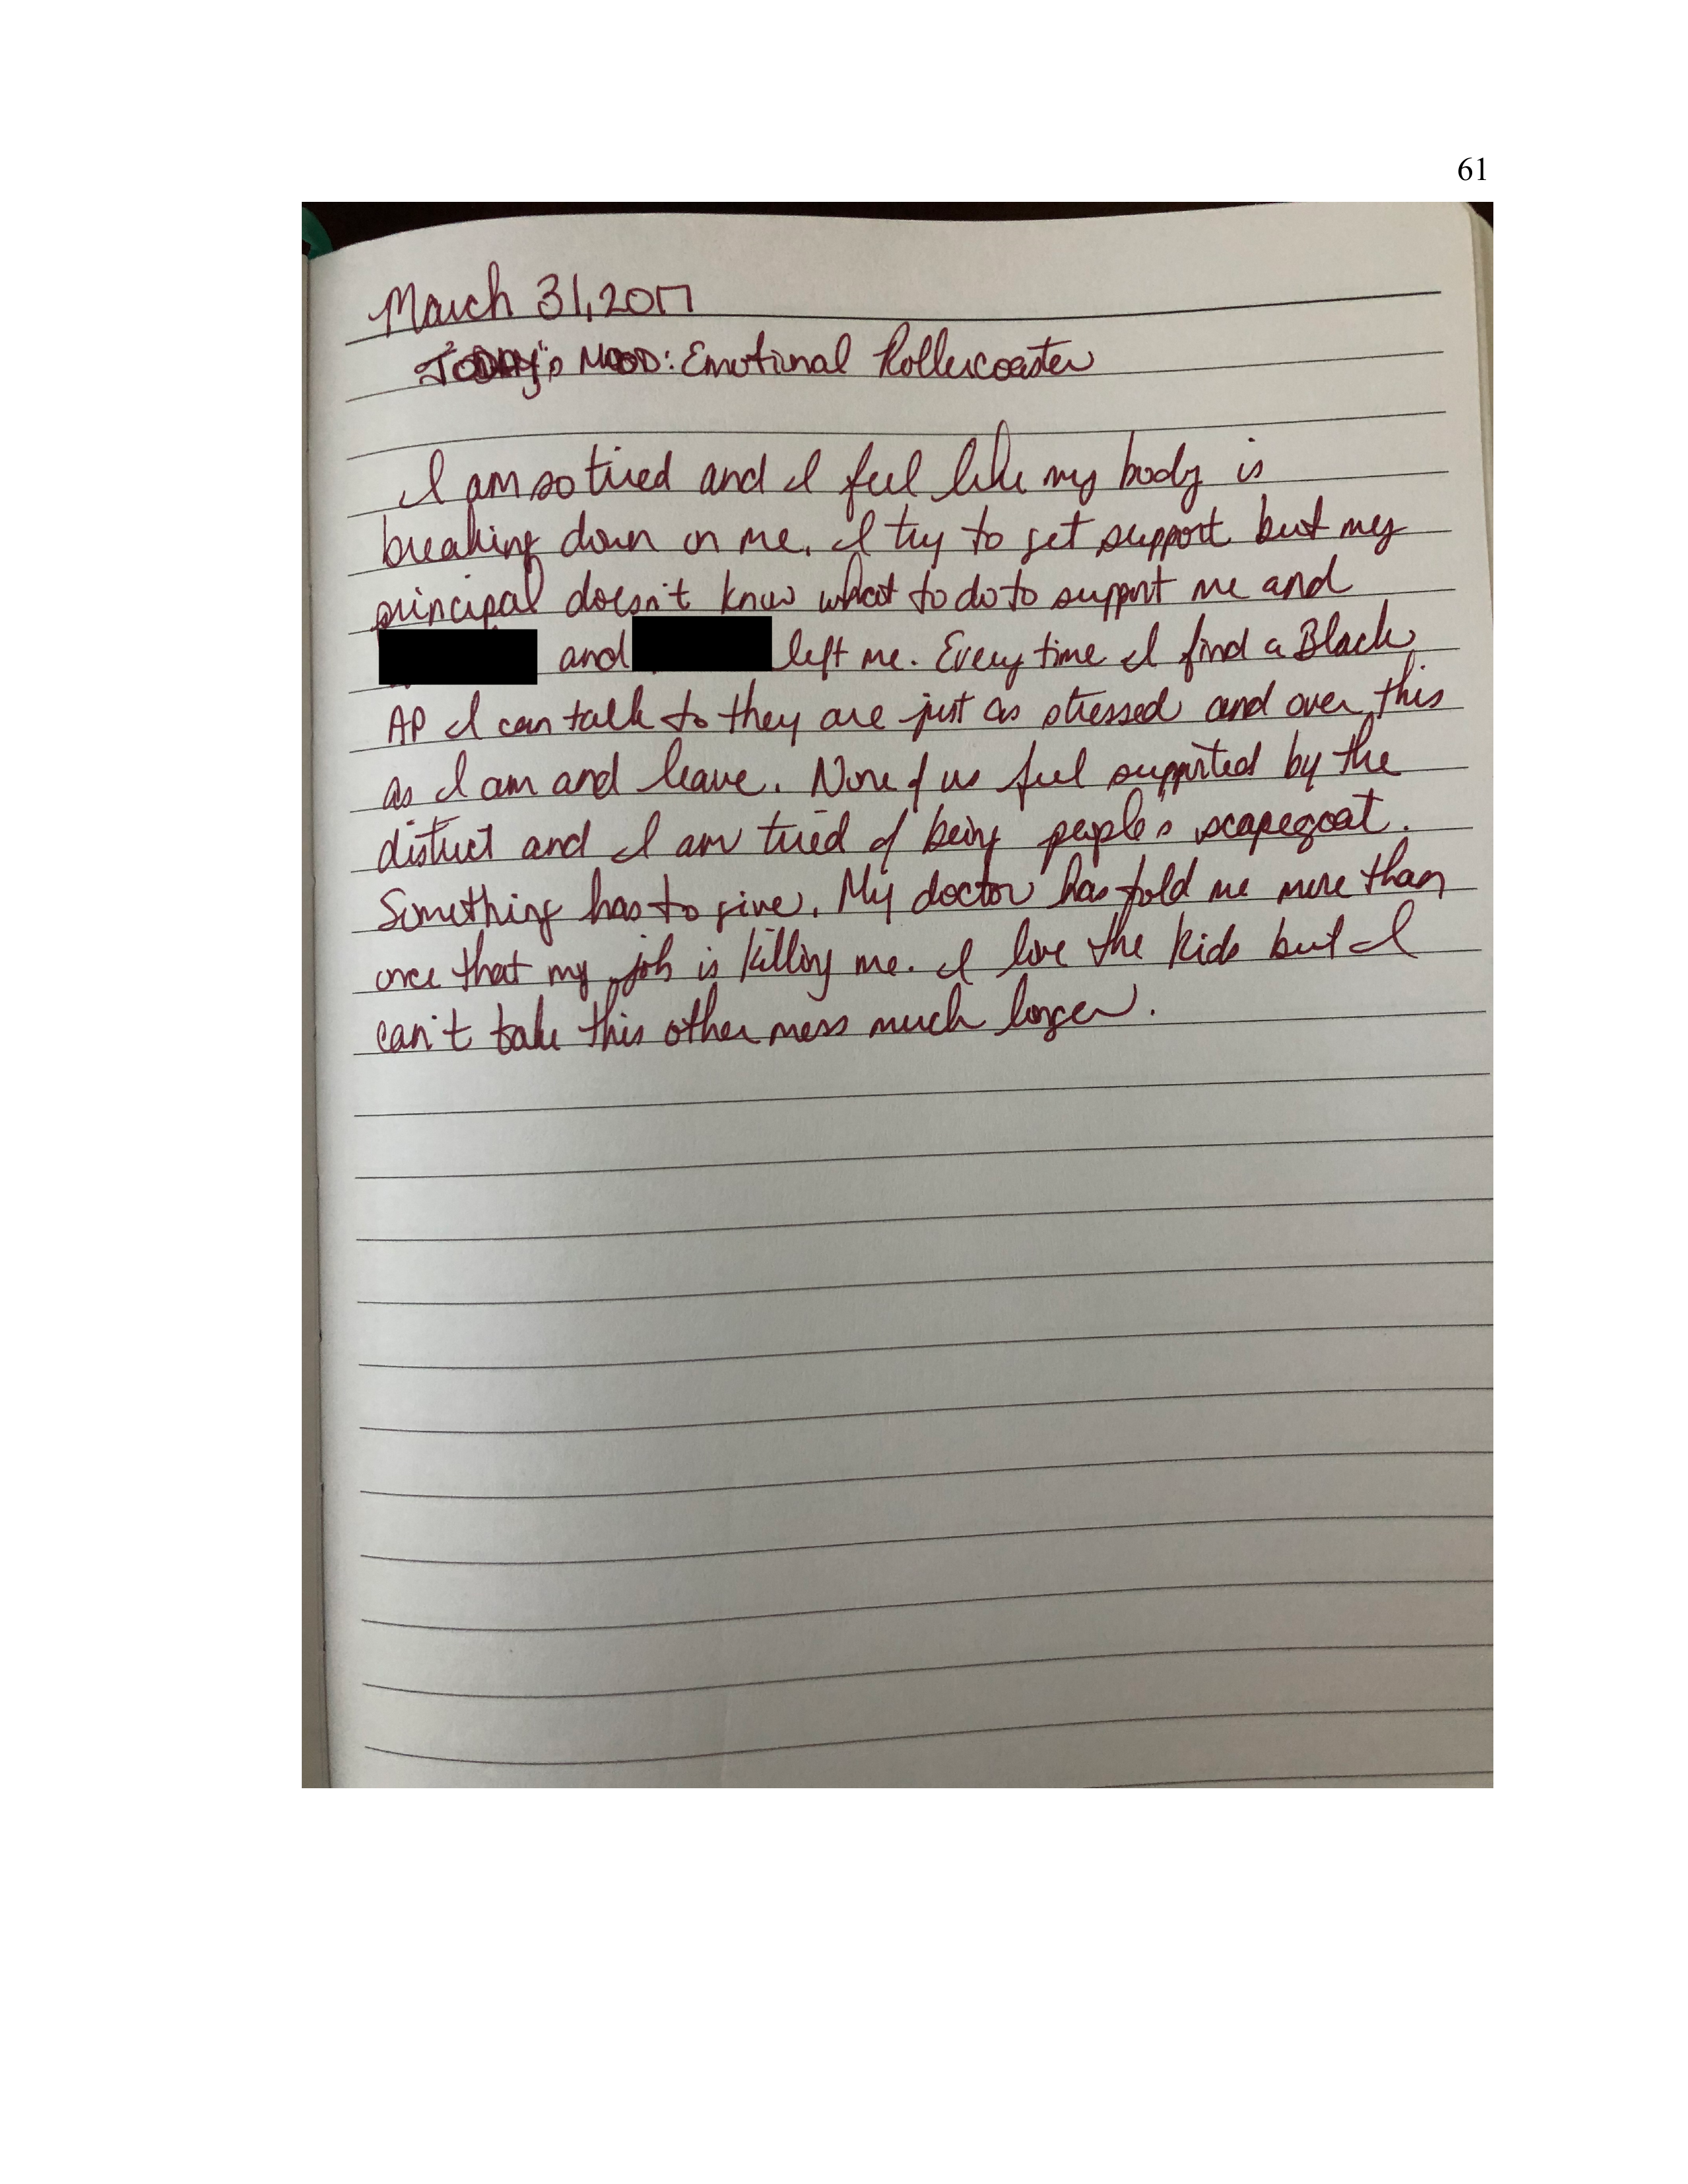 61
March 31, 2017
TODAY's MOOD: Emotional Rollercoaster
I am so tired and I feel like my body is
breaking down on me. I try to get support but my
principal doesn't know what to do to support me and
and left me. Every time I find a Black
AP I can talk to they are just as stressed and over this
as I am and leave. None of us feel supported by the
district and I am tired of being people's scapegoat.
Something has to give. My doctor has told me more than
once that my job is killing me. I love the kids but I
can't take this other mess much longer.